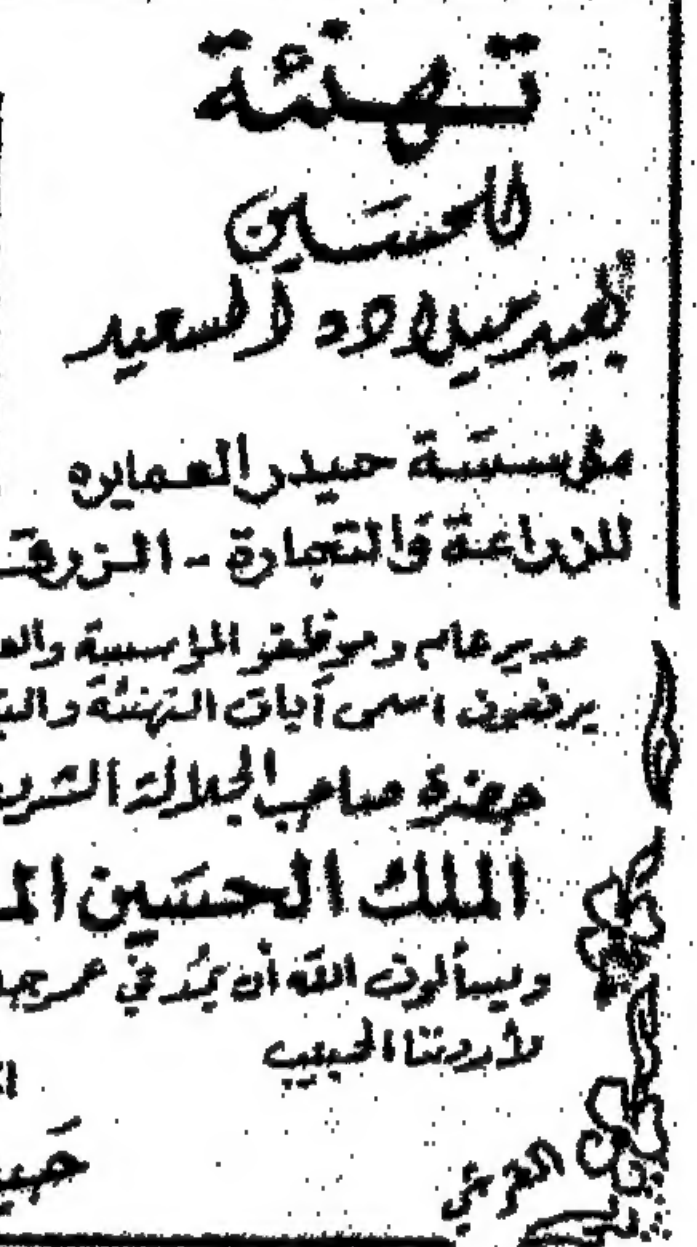 تهنئة
للحسين
بعيد ميلاده السعيد
مؤسسة حيدر العمايره
للزراعة والتجارة - الزرقـ
مدير عام وموظفو المؤسسة والعـ
يرفعون اسمى آيات التهنئة والتبـ
حضرة صاحب الجلالة الشريـ
الملك الحسين المـ
ويسألون الله أن يمد في عمر جـ
لأردننا الحبيب